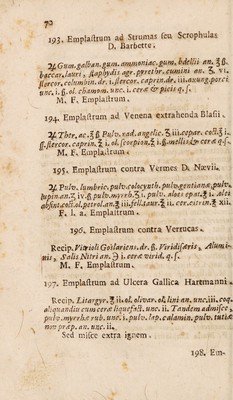 70
193. Emplastrum ad Strumas seu Scrophulas
D. Barbette.
♃ Gum. galban. gum. ammoniac. gum. bdellii an. ℥ß.
baccar. lauri, staphydis agr. pyretr. cumini an. ʒ vi.
stercor. columbin. dr. i. stercor. caprin. dr. iii. axung. porci
unc. i. ß. ol. chamom. unc. i. ceræ & picis q. s.
M. F. Emplastrum.
194. Emplastrum ad Venena extrahenda Blasii.
♃ Ther. ac. ℥ß Pulv. rad. angelic. ʒ iii. cepar. coct. ℥ i.
ß. stercor. caprin. ℥ i. ol. scorpion. ℥ i. ß. mellis & ceræ q. s.
M. F. Emplastrum.
195. Emplastrum contra Vermes D. Nævii.
♃ Pulv. lumbric. pulv. colocynth. pulv. gentianæ, pulv.
lupin. an. ʒ iv. ß. pulv. myrrh. ʒ i. pulv. aloes epat. ℥ i. olei
absint. coct. ol. petrol. an. ℥ iii. fell. taur. ℥ ii. cer. citrin. ℥ xii.
F. l. a. Emplastrum.
196. Emplastrum contra Verrucas.
Recip. Vitrioli Goslariens. dr. ß. Viridisæris, Alumi-
nis, Salis Nitri an. ℈ i. ceræ virid. q. s.
M. F. Emplastrum.
197. Emplastrum ad Ulcera Gallica Hartmanni.
Recip. Litargyr. ℥ ii. ol. olivar. ol. lini an. unc. iii. coq.
aliquandiu cum ceræ liquefact. unc. ii. Tandem admisce,
pulv. myrrhæ rub. unc. i. pulv. lap. calamin. pulv. tutiæ
præp. an. unc. ii.
Sed misce extra ignem.
198. Em-